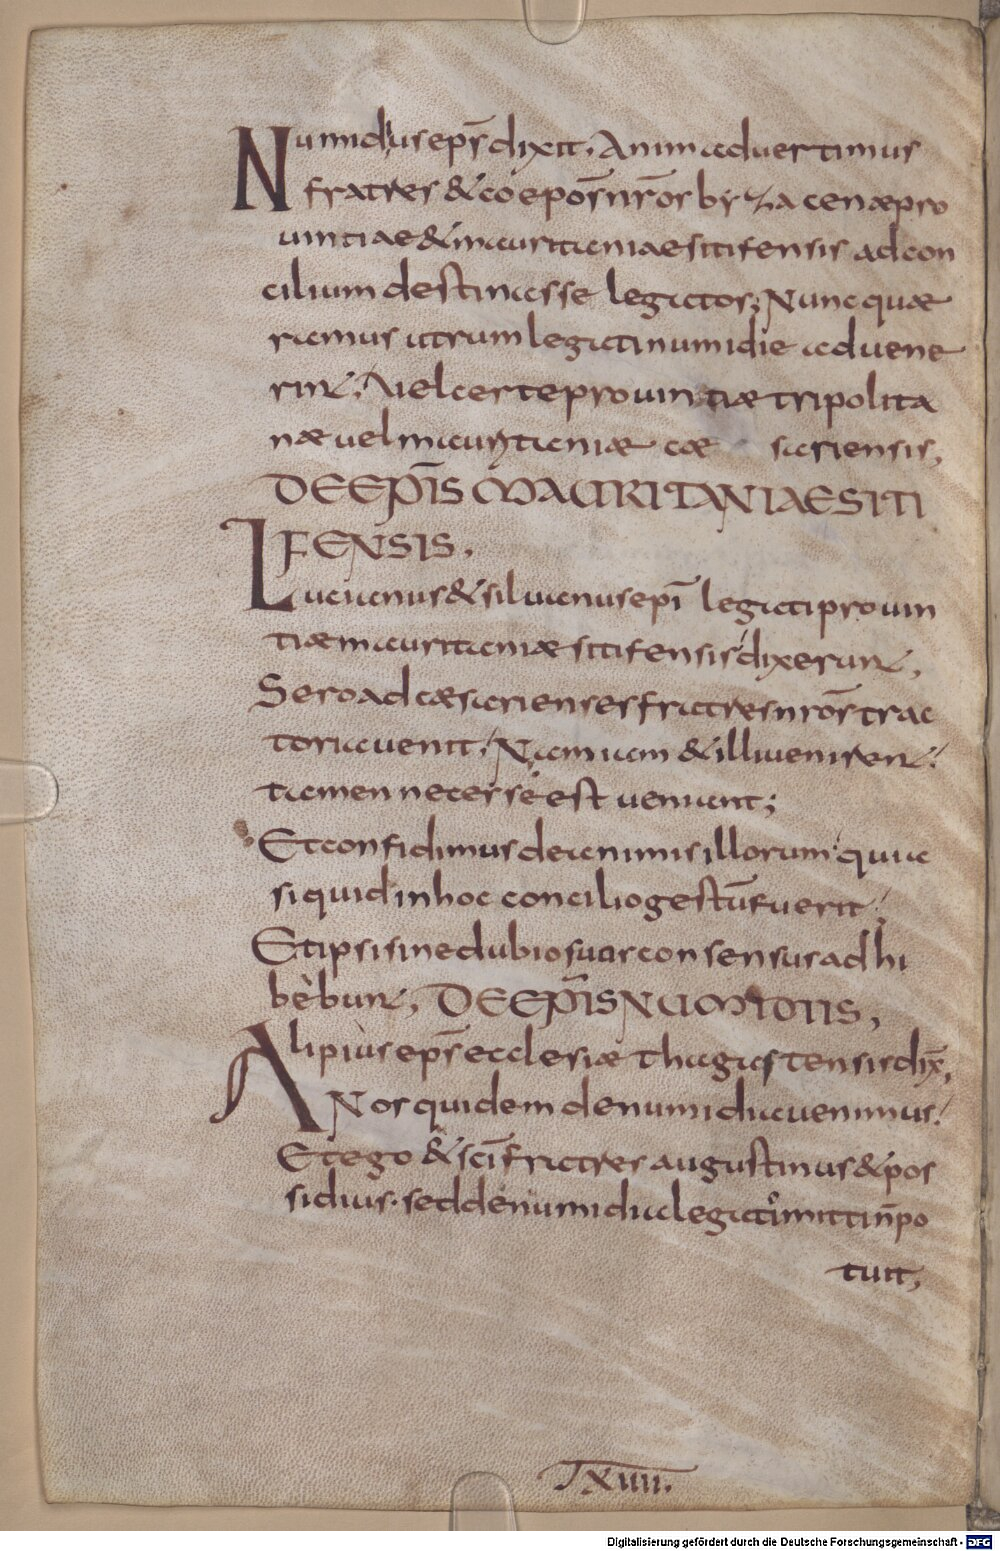 Numidius ep̅s dixit. Animaduertimus
fratres & coepos̅ nr̅os byzacenæ pro
uintiae & mauritaniae sitifensis ad con
cilium destinasse legatos; Nunc quæ
ramus utrum legati numidie aduene
rint. Vel certe prouintiæ tripolita
næ uel mauritaniæ cæ sariensis,
DE EPI̅S MAURITANIAE SITI
FENSIS.
Lucianus & siluanus epi̅ legati prouin
tiæ mauritaniæ sitifensis dixerunt,
Sero ad cæsarienses fratres nr̅os trac
toria uenit. Nam iam & illi uenirent.
tamen necesse est ueniant;
Et confidimus de animis illorum quia
si quid in hoc concilio gestu̅ fuerit.
Et ipsi sine dubio suos consensus adhi
bebunt, DE EPI̅S NUMIDIIS,
Alipius ep̅s ecclesiæ thagastensis dix̅,
Nos quidem de numidia uenimus.
Et ego & sc̅i fratres augustinus & pos
sidius. sed de numidia legatio mitti n̅ po
tuit,
IXIIII.
Digitalisierung gefördert durch die Deutsche Forschungsgemeinschaft - DFG